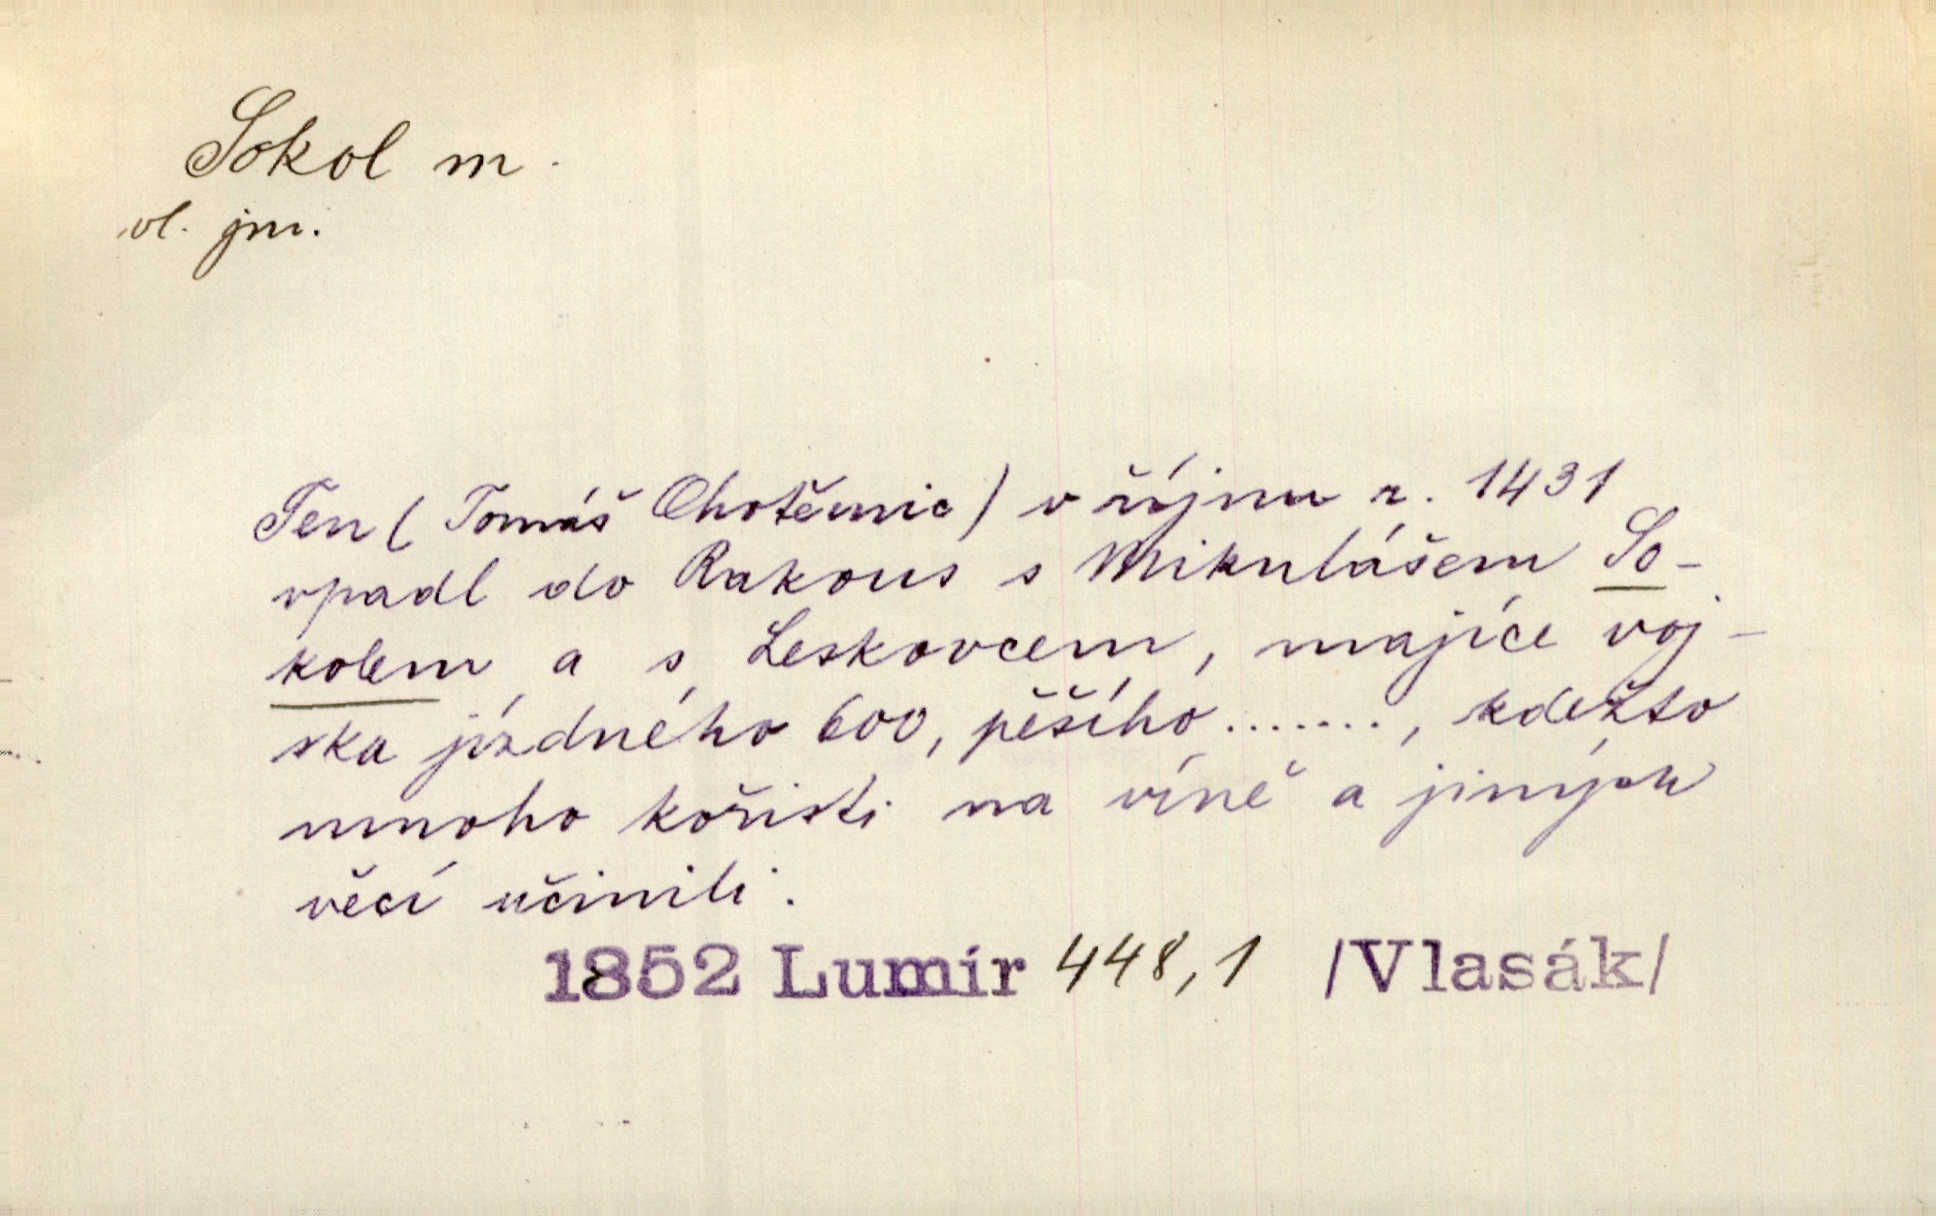 Sokol m.
vl. jm.
Ten ( Tomáš Chotěmic ) v říjnu r. 1431
vpadl do Rakous s Mikulášem So-
kolem a s Leskovcem, majíce voj-
ska jízdného 600, pěšího ......., kdežto
mnoho kořisti na víně a jiných
věcí učinili.
1852 Lumír 448,1 /Vlasák/